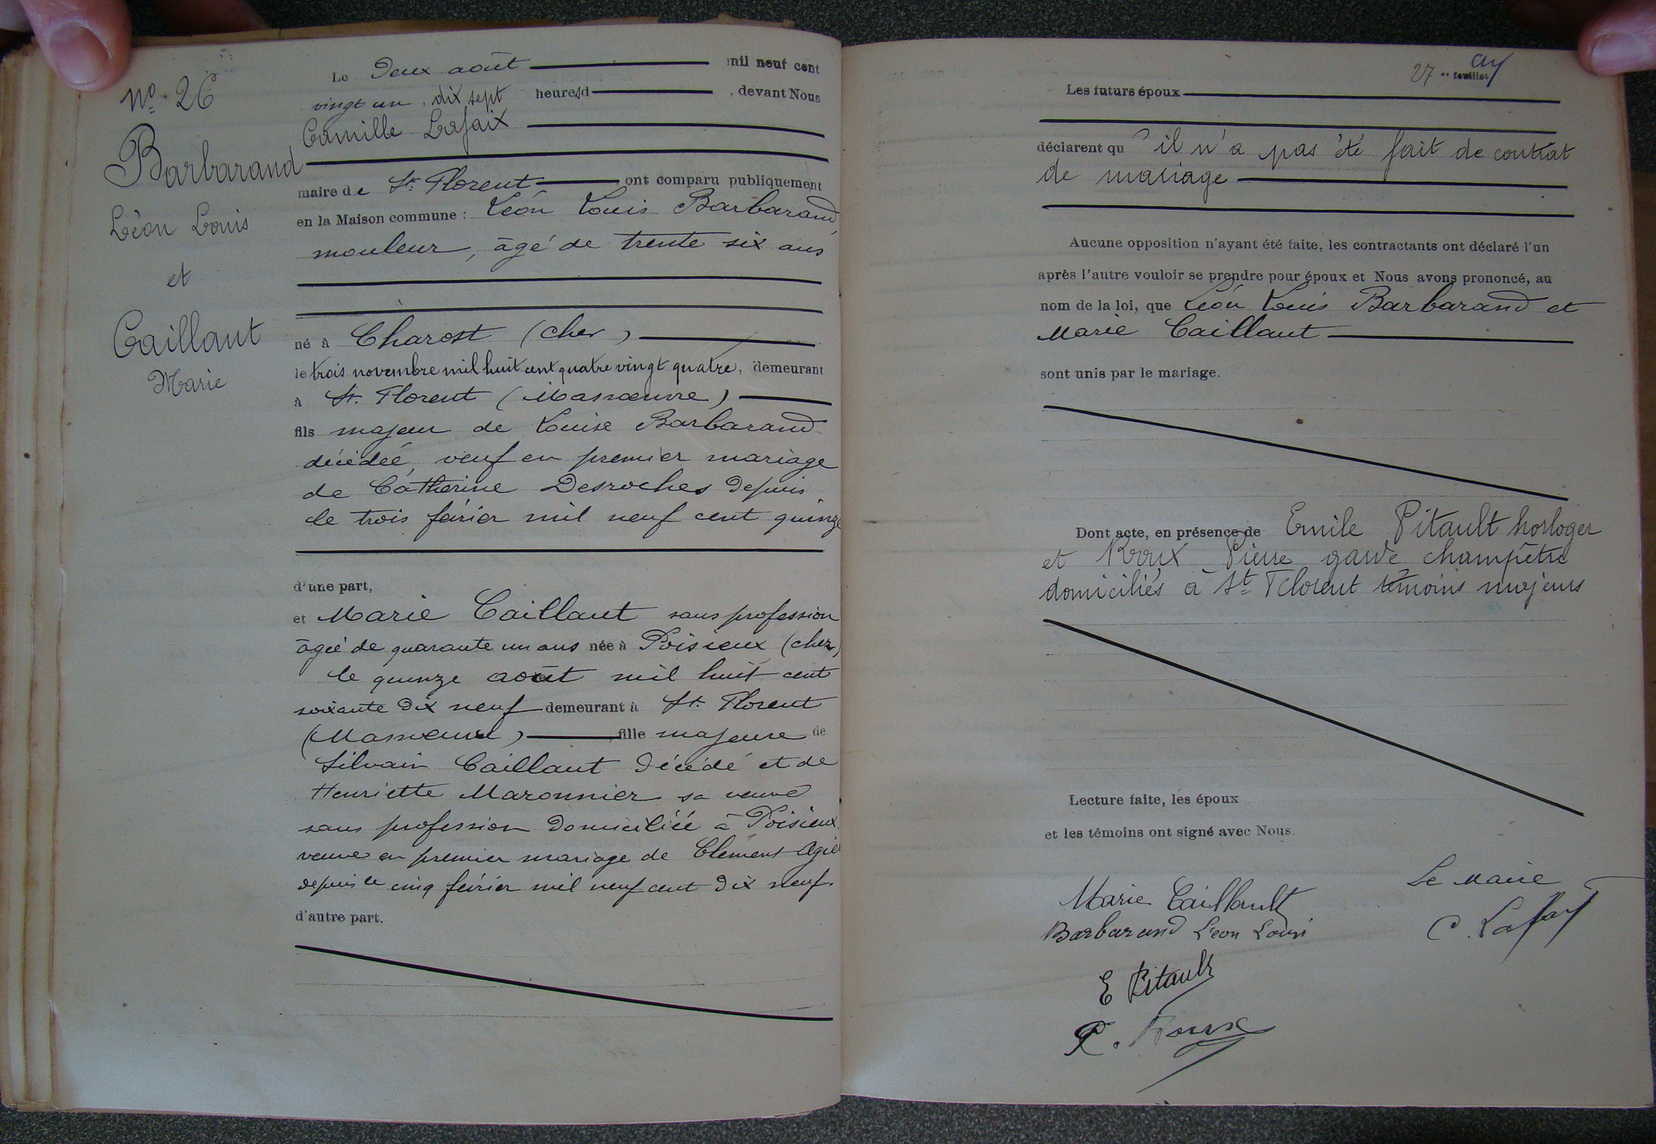 No 26
Barbarand
Léon Louis
et
Caillaut
Marie
Le Deux août mil neuf cent
vingt un, dix sept heures, devant Nous
Camille Lafaix
maire de St. Florent ont comparu publiquement
en la Maison commune : Léon Louis Barbarand,
mouleur, âgé de trente six ans
né à Charost (cher)
le trois novembre mil huit cent quatre vingt quatre, demeurant
à St. Florent (Massœuvre)
fils majeur de Louise Barbarand
décédée, veuf en premier mariage
de Catherine Desroches depuis
le trois février mil neuf cent quinze
d'une part,
et Marie Caillaut sans profession
âgée de quarante un ans née à Poisieux (cher)
le quinze août mil huit cent
soixante dix neuf demeurant à St. Florent
(Massœuvre) fille majeure de
Silvain Caillaut décédé et de
Henriette Maronnier sa veuve
sans profession domiciliée à Poisieux
veuve en premier mariage de Clément
depuis le cinq février mil neuf cent dix neuf.
d'autre part.
27 feuillet
Les futurs époux
déclarent qu'il n'a pas été fait de contrat
de mariage
Aucune opposition n'ayant été faite, les contractants ont déclaré l'un
après l'autre vouloir se prendre pour époux et Nous avons prononcé, au
nom de la loi, que Léon Louis Barbarand et
Marie Caillaut
sont unis par le mariage.
Dont acte, en présence de Emile Pitault horloger
et Roux Pierre garde champêtre
domiciliés à St Florent témoins majeurs
Lecture faite, les époux
et les témoins ont signé avec Nous.
Marie Caillault
Barbarand Léon Louis
E Pitault
P. Roux
Le Maire
C. Lafaix